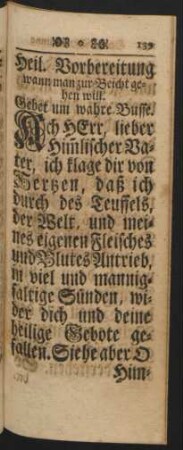 o 139
Heil. Vorbereitung
wann man zur Beicht ge-
hen will.
Gebet um wahre Busse.
Ach HErr, lieber
Him̄lischer Va-
ter, ich klage dir von
Hertzen, daß ich
durch des Teuffels,
der Welt, und mei-
nes eigenen Fleisches
und Blutes Antrieb,
in viel und mannig-
faltige Sünden, wi-
der dich und deine
heilige Gebote ge-
fallen. Siehe aber O
Him-